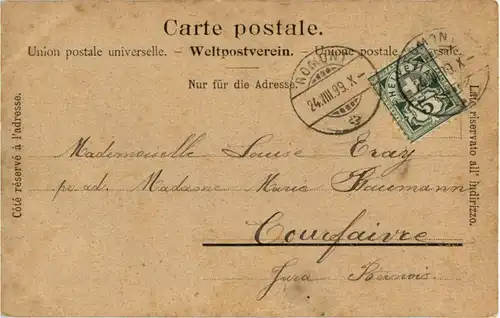 Carte postale.
Union postale universelle. – Weltpostverein. – Unione postale universale.
Nur für die Adresse.
Côté réservé à l'adresse.
Lato riservato all' indirizzo.
ROMONT
24.VIII.99.X–
ROMONT
24.VIII.99.X–
HELVETIA
5
Mademoiselle Louise Eray
pr. ad. Madame Marie Baumann
Courfaivre
Jura Bernois.